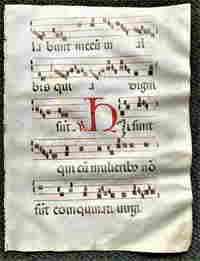 la bunt mecū in al
bis qui a digni
sūt. ℣ H i sunt
qui cū mulieribꝰ nō
sūt coinquinati uirgi